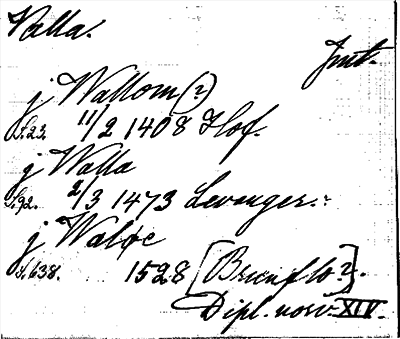 Valla.
Jmt.
j Wallom (?)
S. 22. 11/2 1408 Hof.
j Walla
S. 92. 2/3 1473 Levanger.
j Waløe
S. 638. 1528 [Brunflo?].
Dipl. norv. XIV.